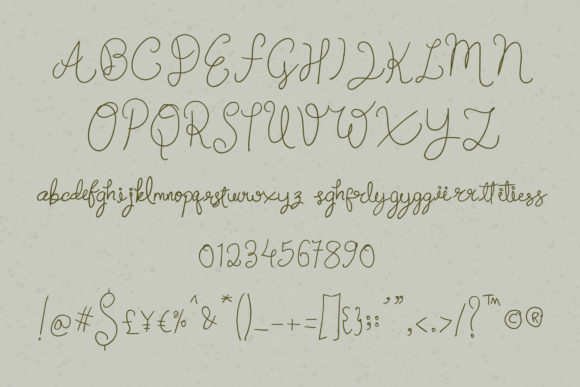 ABCDEFGHIJKLMN
OPQRSTUVWXYZ
abcdefghijklmnopqrstuvwxyz
01234567890
!@#$£¥€%^&*()_-+=[]{};:'",<.>/?™©®